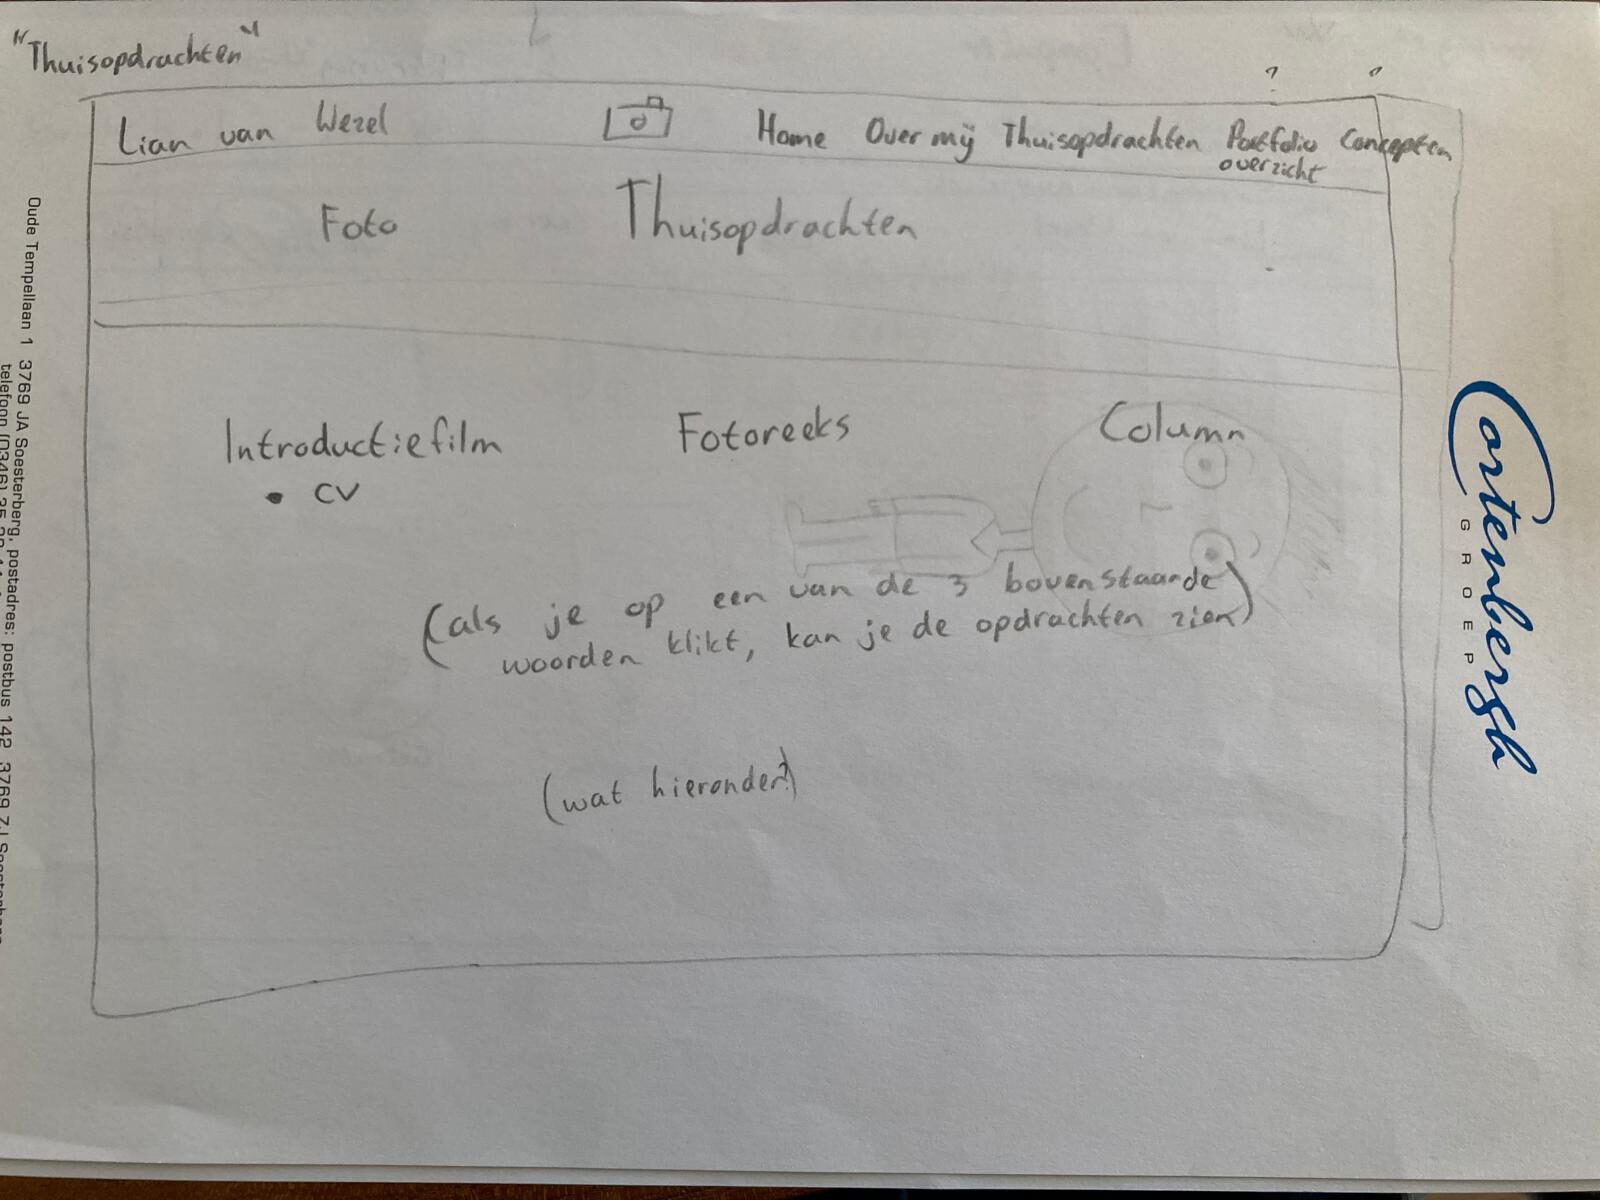 "Thuisopdrachten"
? ?
Lian van Wezel Home Over mij Thuisopdrachten Portfolio overzicht Concepten
Foto Thuisopdrachten
Introductiefilm Fotoreeks Column
• CV
(als je op een van de 3 bovenstaande
woorden klikt, kan je de opdrachten zien)
(wat hieronder?)
Cortenbergh
GROEP
Oude Tempellaan 1 3769 JA Soesterberg, postadres: postbus 142 3769 ZJ
telefoon (0346) 35